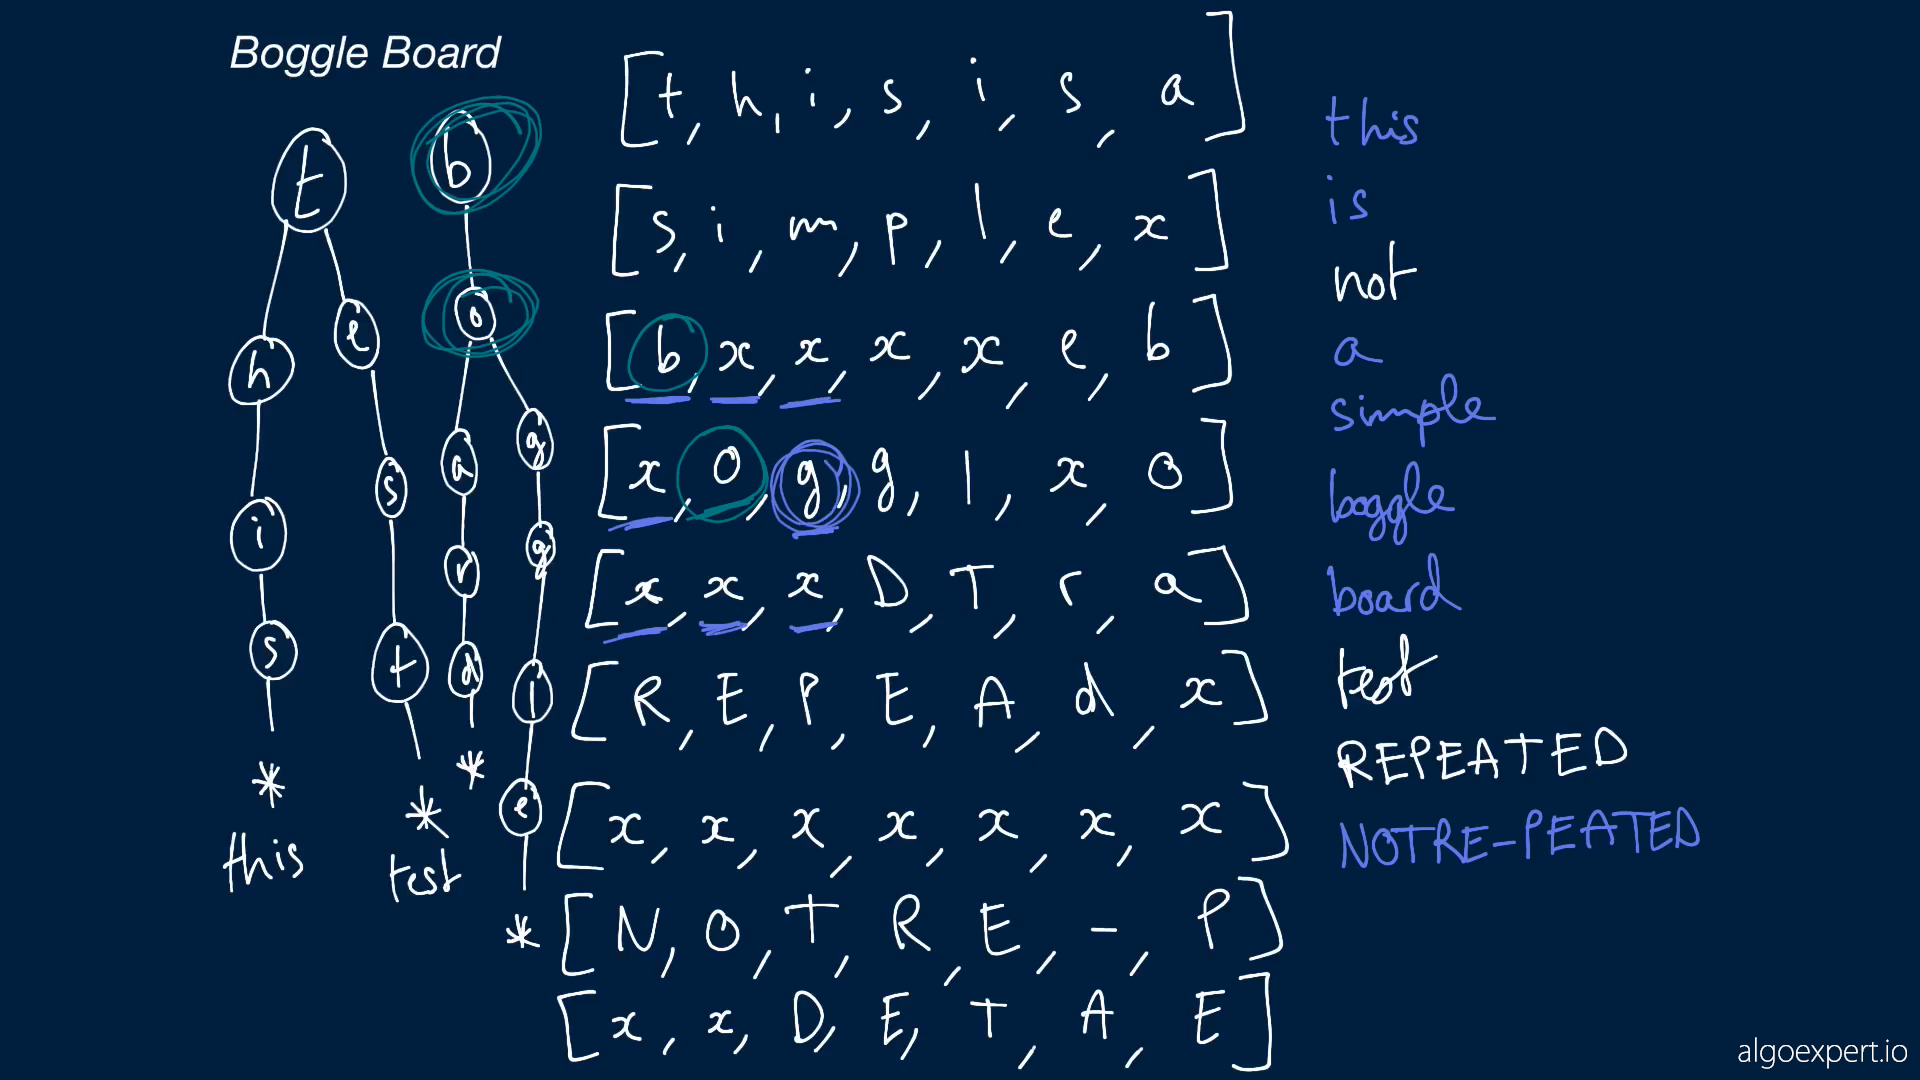 Boggle Board
t
h
i
s
*
this
e
s
t
*
test
b
o
a
r
d
*
g
g
l
e
*
[t, h, i, s, i, s, a]
[s, i, m, p, l, e, x]
[b, x, x, x, x, e, b]
[x, o, g, g, l, x, o]
[x, x, x, D, T, r, a]
[R, E, P, E, A, d, x]
[x, x, x, x, x, x, x]
[N, O, T, R, E, -, P]
[x, x, D, E, T, A, E]
this
is
not
a
simple
boggle
board
test
REPEATED
NOTRE-PEATED
algoexpert.io